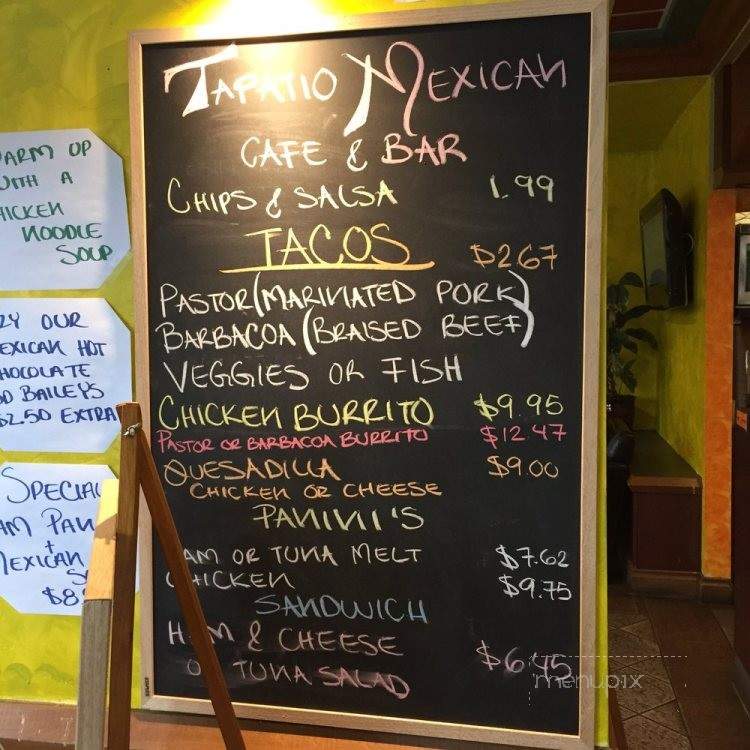 TAPATIO MEXICAN
CAFE & BAR
CHIPS & SALSA 1.99
TACOS $2.67
PASTOR (MARINATED PORK)
BARBACOA (BRAISED BEEF)
VEGGIES OR FISH
CHICKEN BURRITO $9.95
PASTOR OR BARBACOA BURRITO $12.47
QUESADILLA $9.00
CHICKEN OR CHEESE
PANINI'S
AM OR TUNA MELT $7.62
CHICKEN $9.75
SANDWICH
HAM & CHEESE $6.45
OR TUNA SALAD
ARM UP
WITH A
HICKEN
NOODLE
SOUP
ZY OUR
EXICAN HOT
HOCOLATE
D BAILEYS
$2.50 EXTRA
SPECIAL
AM PAN
+
MEXICAN
$8
menupix